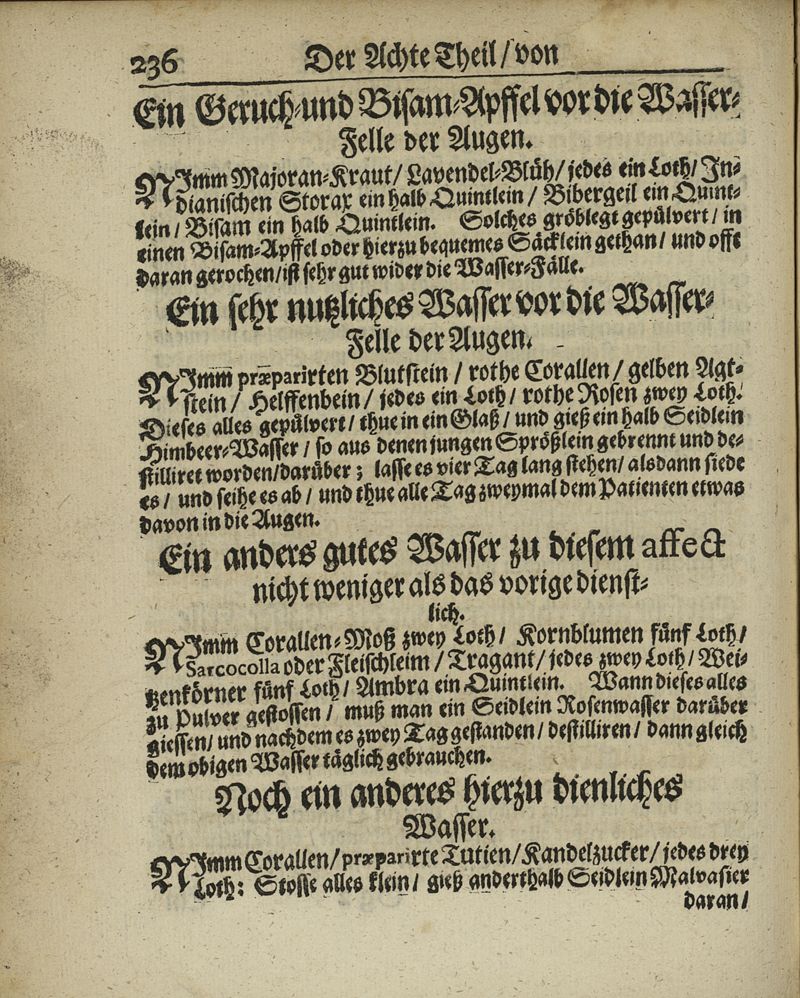 236 Der Achte Theil/ von
Ein Geruch-und Bisam-Apffel vor die Wasser-
Felle der Augen.
NImm Majoran-Kraut/ Lavendel-Blüh/ jedes ein Loth/ In-
dianischen Storax ein halb Quintlein/ Bibergeil ein Quint-
lein/ Bisam ein halb Quintlein. Solches gröblegt gepülvert/ in
einen Bisam-Apffel oder hierzu bequemes Säcklein gethan/ und offt
daran gerochen/ ist sehr gut wider die Wasser-Fälle.
Ein sehr nutzliches Wasser vor die Wasser-
Felle der Augen.
NImm̃ præparirten Blutstein/ rothe Corallen/ gelben Agt-
stein/ Helffenbein/ jedes ein Loth/ rothe Rosen zwey Loth.
Dieses alles gepülvert/ thue in ein Glaß/ und gieß ein halb Seidlein
Himbeer-Wasser/ so aus denen jungen Sprößlein gebrennt und de-
stilliret worden/ darüber; lasse es vier Tag lang stehen/ alsdann siede
es/ und seihe es ab/ und thue alle Tag zweymal dem Patienten etwas
davon in die Augen.
Ein anders gutes Wasser zu diesem affect
nicht weniger als das vorige dienst-
lich.
NImm Corallen-Moß zwey Loth/ Kornblumen fünf Loth/
Sarcocolla oder Fleischleim/ Tragant/ jedes zwey Loth/ Wei-
tzenkörner fünf Loth/ Ambra ein Quintlein. Wann dieses alles
zu Pulver gestossen/ muß man ein Seidlein Rosenwasser darüber
giessen/ und nachdem es zwey Tag gestanden/ destilliren/ dann gleich
dem obigen Wasser täglich gebrauchen.
Noch ein anderes hierzu dienliches
Wasser.
NImm Corallen/ præparirte Tutien/ Kandelzucker/ jedes drey
Loth: Stosse alles klein/ gieß anderthalb Seidlein Malvasier
daran/